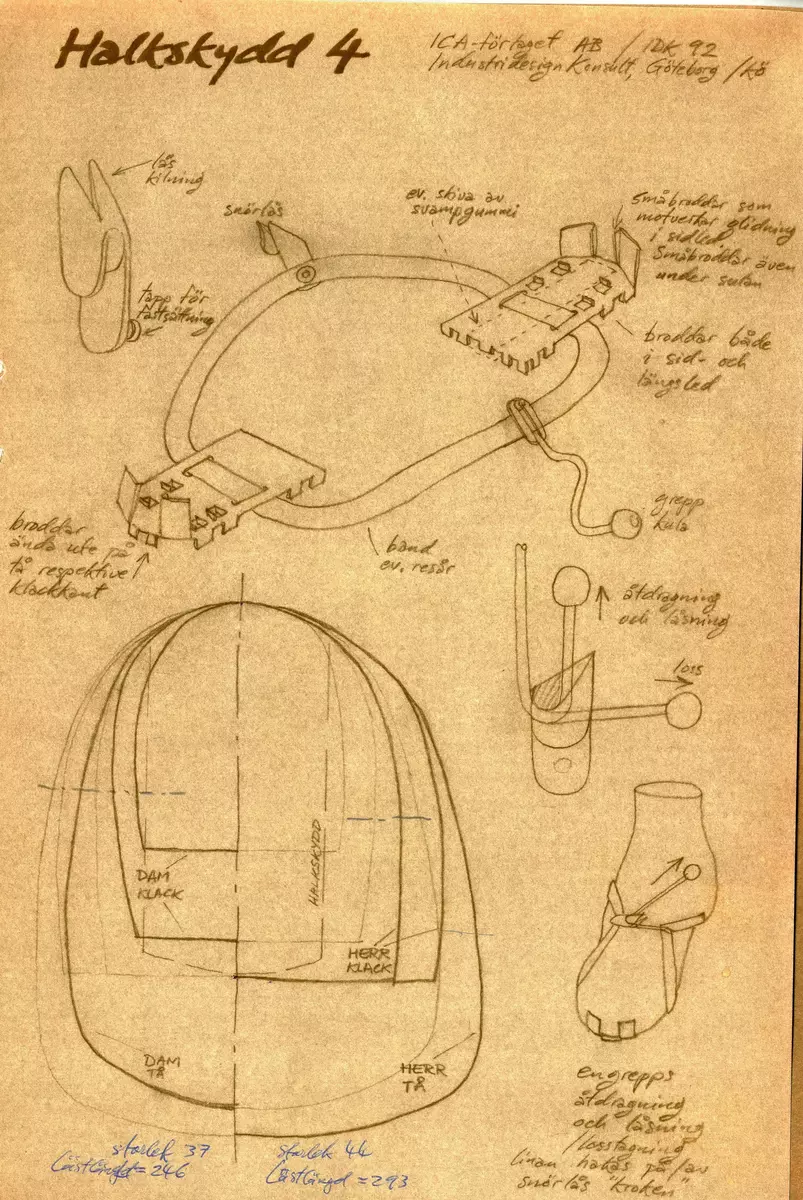 Halkskydd 4
ICA-förlaget AB / IDK 92
Industridesign Konsult, Göteborg /KÖ
lås
kilning
snörlås
ev. skiva av
svampgummi
Småbroddar som
motverkar glidning
i sidled
Småbroddar även
under sulan
tapp för
fastsättning
broddar både
i sid- och
längsled
grepp
kula
broddar
ända ute på
tå respektive
klackkant
band
ev. resår
åtdragning
och låsning
loss
HALKSKYDD
DAM
KLACK
HERR
KLACK
DAM
TÅ
HERR
TÅ
engrepps
åtdragning
och låsning
/losstagning
linan hakas på/av
snörlås "kroken"
storlek 37
Lästlängd = 246
storlek 44
Lästlängd = 293